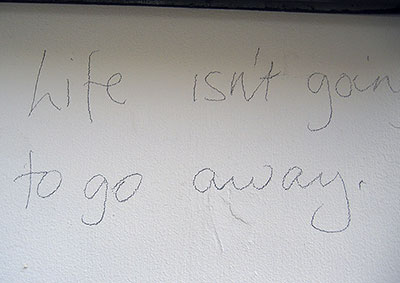 Life isn't goin
to go away.